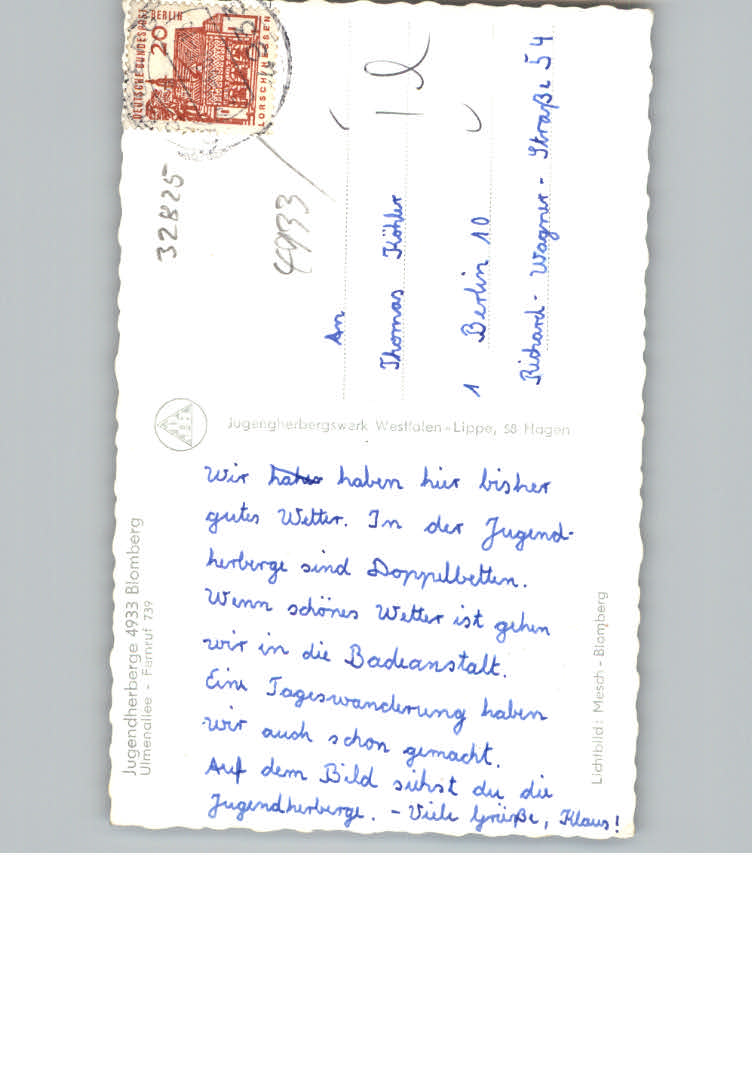 Wir haben hier bisher
gutes Wetter. In der Jugend-
herberge sind Doppelbetten.
Wenn schönes Wetter ist gehen
wir in die Badeanstalt.
Eine Tageswanderung haben
wir auch schon gemacht.
Auf dem Bild siehst du die
Jugendherberge. - Viele Grüße, Klaus!
An
Thomas Köhler
1 Berlin 10
Richard-Wagner-Straße 54
DEUTSCHE BUNDESPOST BERLIN
20
LORSCH/HESSEN
32825
4933
Jugengherbergswerk Westfalen-Lippe, 58 Hagen
Jugendherberge 4933 Blomberg
Ulmenallee - Fernruf 739
Lichtbild: Mesch-Blomberg